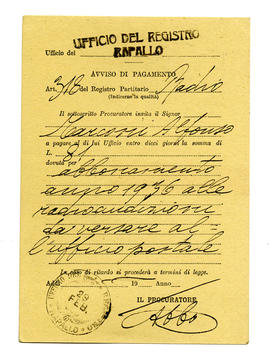 UFFICIO DEL REGISTRO
Ufficio del RAPALLO
AVVISO DI PAGAMENTO
Art. 318 del Registro Partitario Radio
(Indicarne la qualità)
Il sottoscritto Procuratore invita il Signor
Marconi Alfonso
a pagare al di lui Ufficio entro dieci giorni la somma di
L.
dovuta per
abbonamento
anno 1936 alle
radioaudizioni
da versare al-
l'ufficio postale
In caso di ritardo si procederà a termini di legge.
19 Anno
IL PROCURATORE
RAPALLO